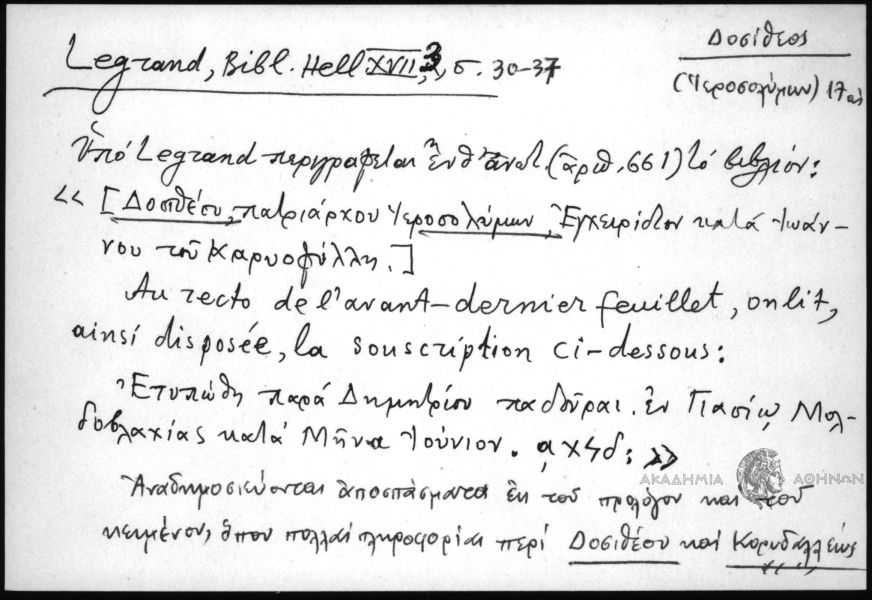 Legrand, Bibl. Hell. XVII, 3, σ. 30-37
Δοσίθεος
(Ἱεροσολύμων) 17 αἰ
Ὑπό Legrand περιγράφεται ἐνθ' ἀνωτ. (ἀριθ. 661) τό βιβλίον:
« [Δοσιθέου, πατριάρχου Ἱεροσολύμων, Ἐγχειρίδιον κατά Ἰωάν-
νου τοῦ Καρυοφύλλη.]
Au recto de l'avant-dernier feuillet, on lit,
ainsi disposée, la souscription ci-dessous:
Ἐτυπώθη παρά Δημητρίου παδοῦραι. ἐν Γιασίῳ Μολ-
δοβλαχίας κατά Μῆνα Ἰούνιον. αχϟδ: »
ΑΚΑΔΗΜΙΑ ΑΘΗΝΩΝ
Ἀναδημοσιεύονται ἀποσπάσματα ἐκ τοῦ προλόγου καί τοῦ
κειμένου, ὅπου πολλαί πληροφορίαι περί Δοσιθέου καί Κορυδαλλέως